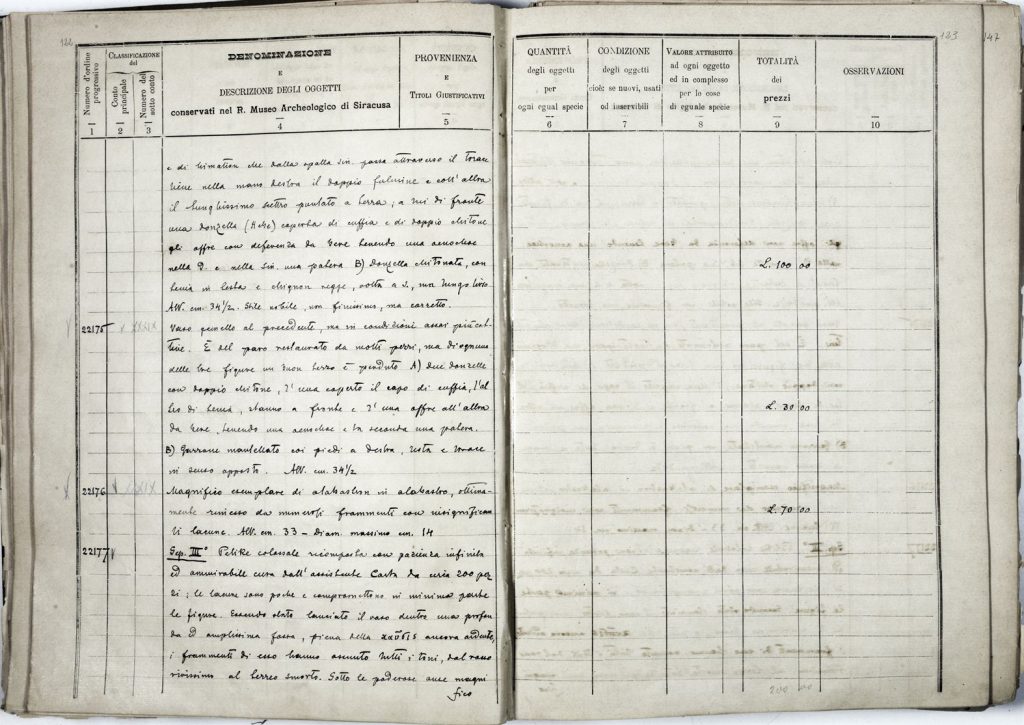 122
Numero d'ordine progressivo
Classificazione del
Conto principale
Numero del sotto conto
DENOMINAZIONE
E
DESCRIZIONE DEGLI OGGETTI
conservati nel R. Museo Archeologico di Siracusa
PROVENIENZA
E
Titoli Giustificativi
1 2 3 4 5
e di himation che dalla spalla sin. passa attraverso il torace
tiene nella mano destra il doppio fulmine e coll' altra
il lunghissimo scettro puntato a terra; a lui di fronte
una donzella (Hebe) coperta di cuffia e di doppio chitone
gli offre con deferenza da bere tenendo una oenochoe
nella D. e nella sin. una patera B) Donzella chitonata, con
tenia in testa e chignon regge, volta a s., un lungo tirso
Alt. cm. 34½. Stile nobile, non finissimo, ma corretto.
22175 V XXXIX Vaso gemello al precedente, ma in condizioni assai più cat-
tive. È del paro restaurato da molti pezzi, ma di ognuna
delle tre figure un buon terzo è perduto A) due donzelle
con doppio chitone, l' una coperto il capo di cuffia, l'al
tra di tenia, stanno a fronte e l' una offre all' altra
da bere, tenendo una oenochoe e la seconda una patera.
B) Garzone mantellato coi piedi a destra, testa e torace
in senso opposto. Alt. cm. 34½
22176 V XXXIX Magnifico esemplare di alabastron in alabastro, ottima-
mente rimesso da numerosi frammenti con insignifican
ti lacune. Alt. cm. 33 – diam. massimo cm. 14
22177 Sep. III° Pelike colossale ricomposta con pazienza infinita
ed ammirabile cura dall' assistente Carta da circa 200 pez
zi; le lacune sono poche e compromettono in minima parte
le figure. Essendo stato lanciato il vaso dentro una profon
da ed amplissima fossa, piena della καῦσις ancora ardente,
i frammenti di esso hanno assunto tutti i toni, dal rosso
vivissimo al terreo smorto. Sotto le poderose anse magni
fico
123
147
QUANTITÀ
degli oggetti
per
ogni egual specie
CONDIZIONE
degli oggetti
cioè: se nuovi, usati
od inservibili
Valore attribuito
ad ogni oggetto
ed in complesso
per le cose
di eguale specie
TOTALITÀ
dei
prezzi
OSSERVAZIONI
6 7 8 9 10
L. 100 00
L. 30 00
L. 70 00
200 00